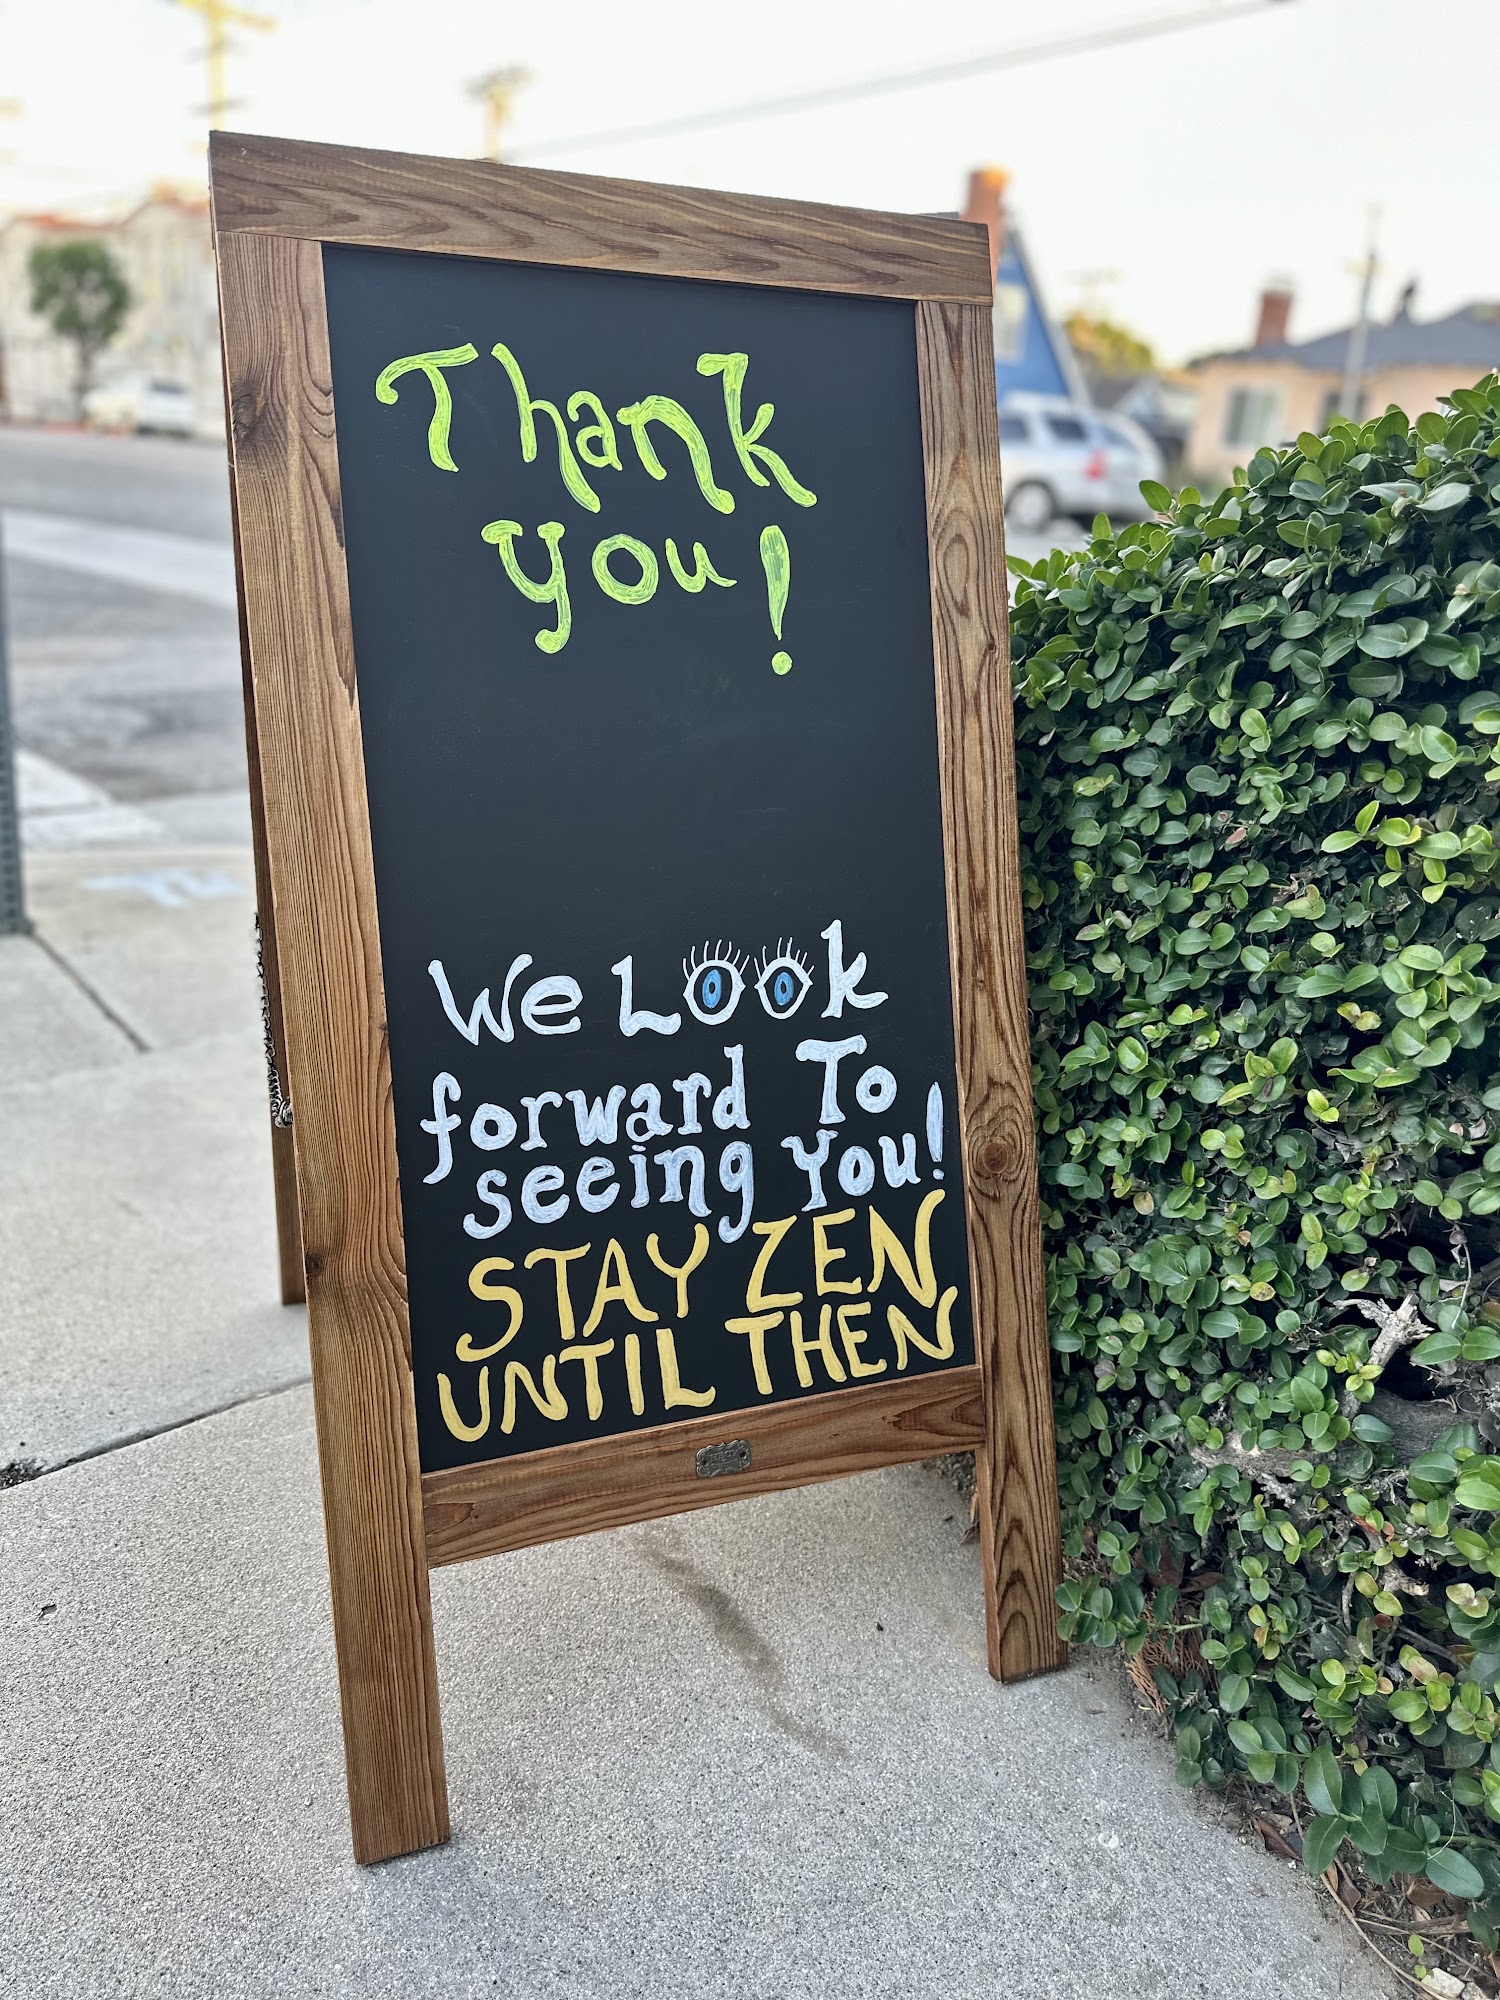 Thank
you!
We Look
forward To
seeing You!
STAY ZEN
UNTIL THEN